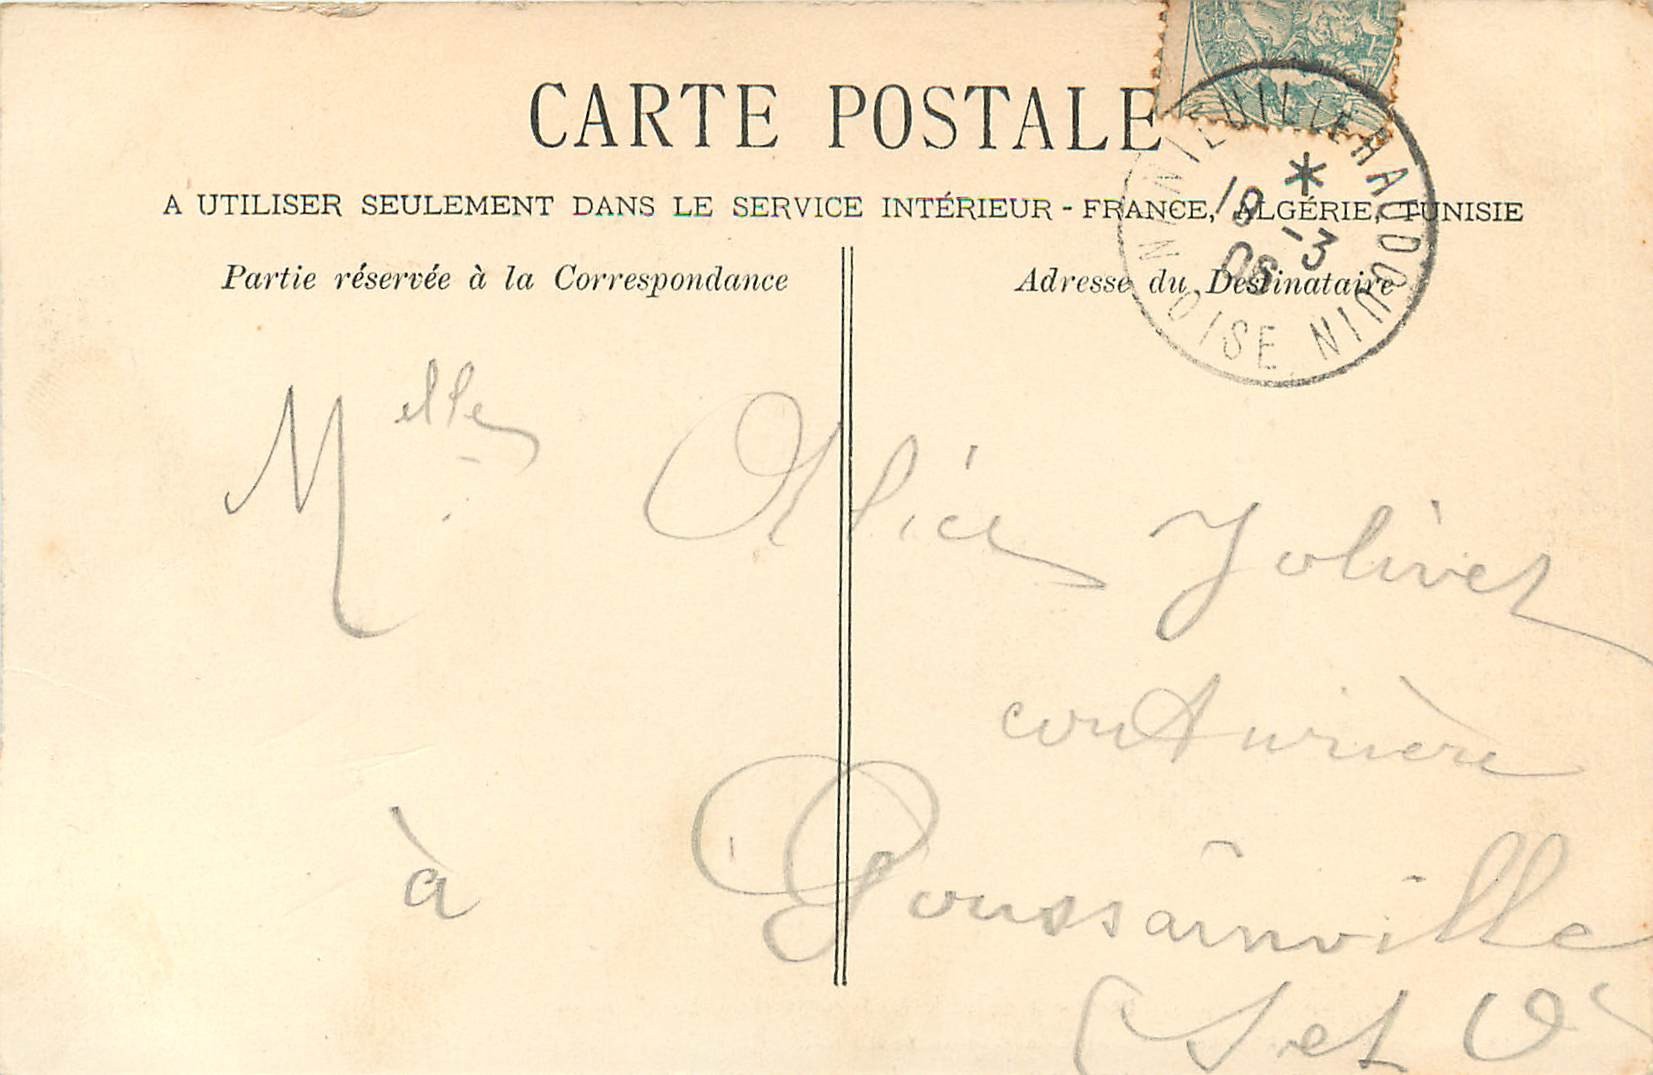 CARTE POSTALE
A UTILISER SEULEMENT DANS LE SERVICE INTÉRIEUR - FRANCE, ALGÉRIE, TUNISIE
Partie réservée à la Correspondance
Adresse du Destinataire
OISE
18 -3
Melle Alice Jolivet
couturière
à Goussainville
(S et O